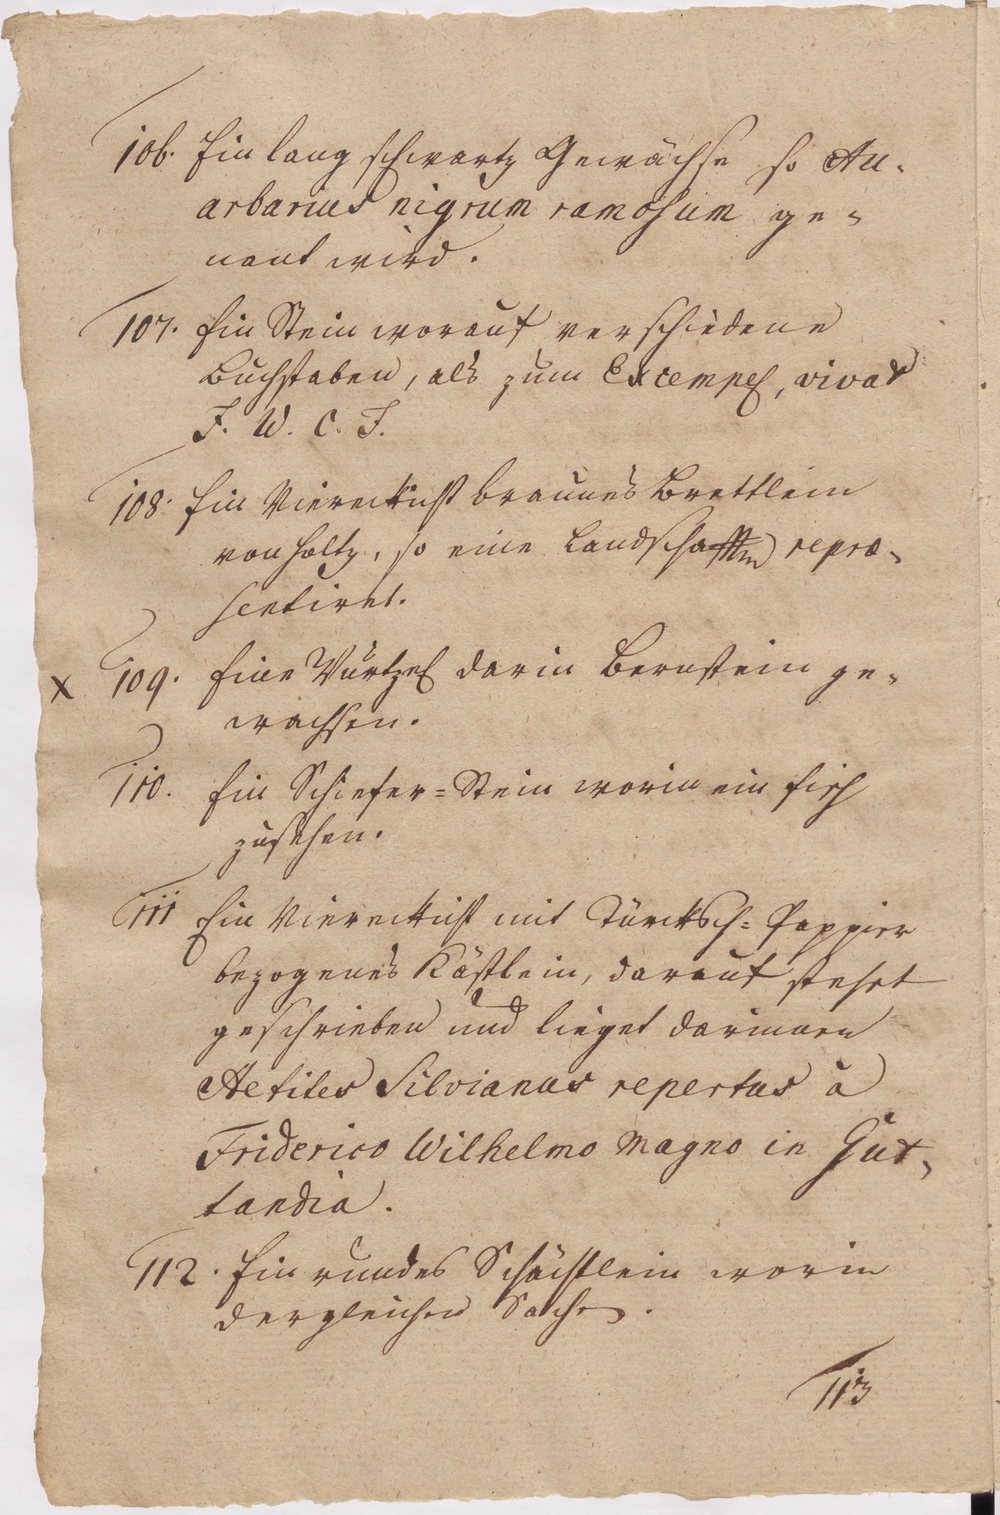 106. Ein lang schwartz Gewächse so An-
arbarius nigrum ramosum ge-
nant wird.
107. Ein Stein worauf verschiedene
Buchstaben, als zum Exempel, vivat
F. W. C. F.
108. Ein Viereckicht braunes Brettlein
von Holtz, so eine Landschafft repræ-
sentiret.
x 109. Eine Würtzel darin Bernstein ge-
wachsen.
110. Ein Schiefer=Stein worin ein fisch
zusehen.
111 Ein Viereckicht mit Türcksch= Pappier
bezogenes Kästlein, darauf stehet
geschrieben und lieget darinnen
Aetites Silvianus repertus à
Friderico Wilhelmo Magno in Gut-
landia.
112. Ein rundes Schächtlein worin
dergleichen Sachen.
113